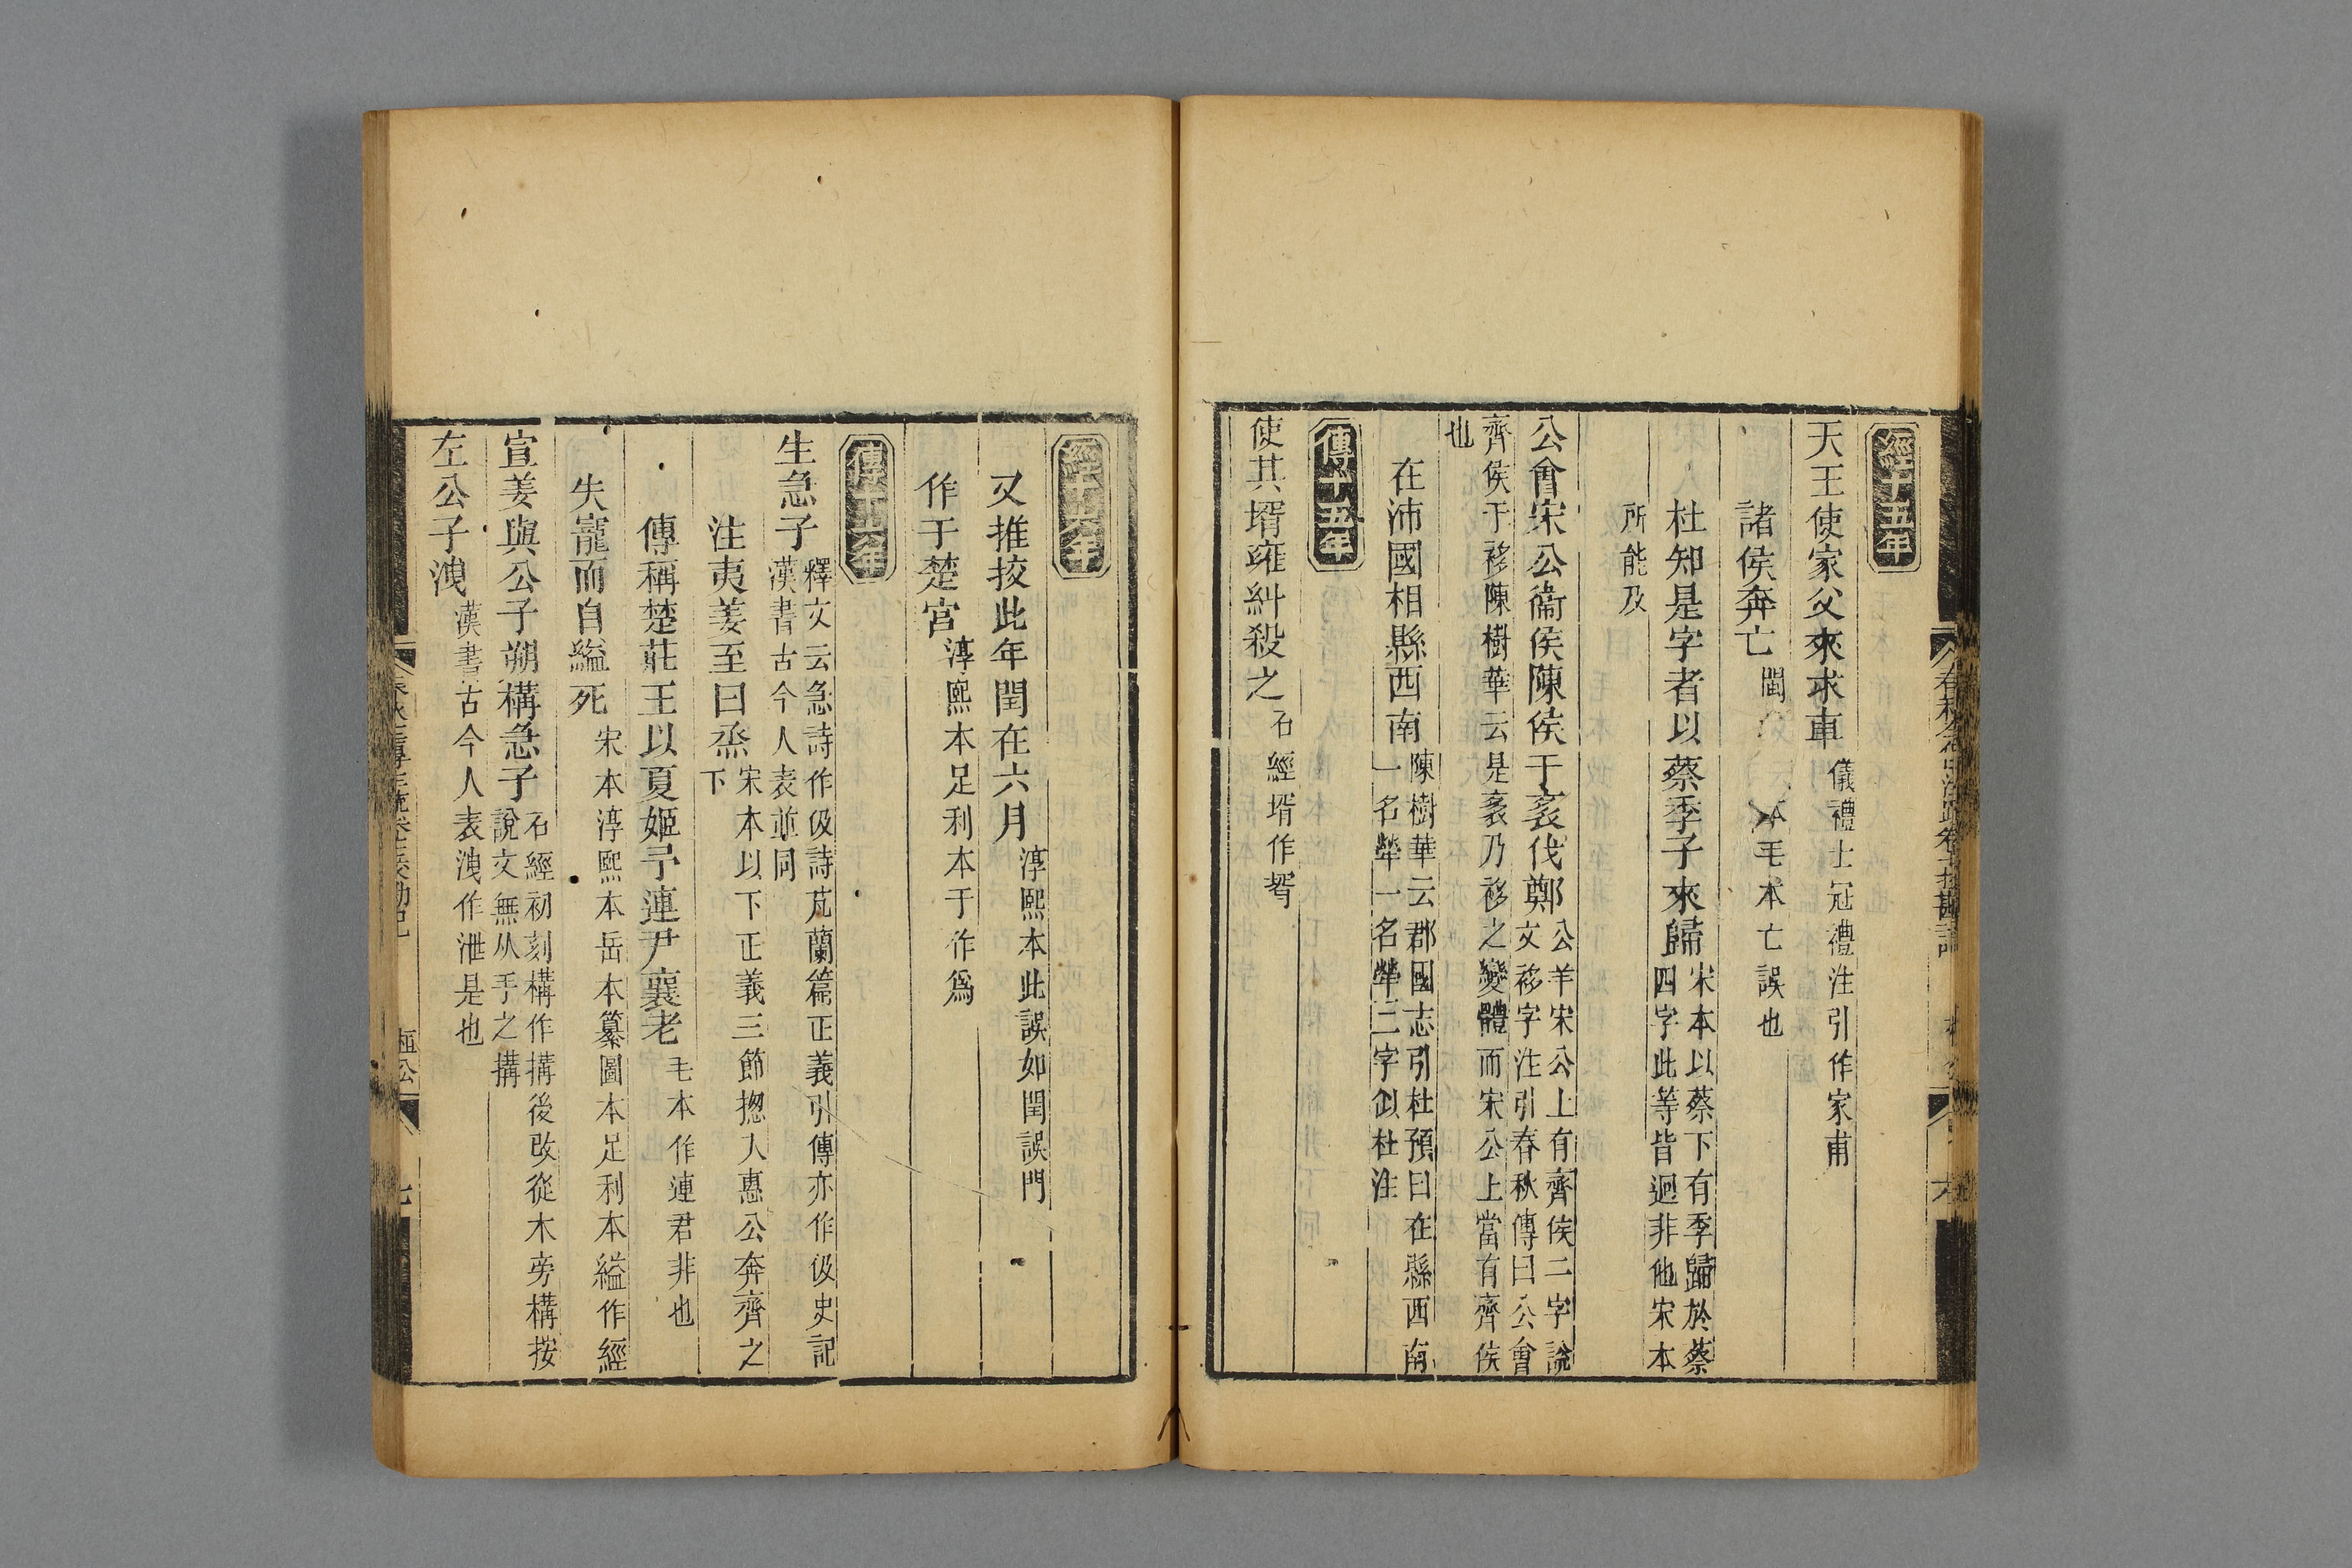 經十五年
天王使家父來求車 儀禮士冠禮注引作家甫
諸侯奔亡 閩 本毛本亡誤也
杜知是字者以蔡季子來歸 宋本以蔡下有季歸於蔡
四字此等皆迥非他宋本
所能及
公會宋公衞侯陳侯于袲伐鄭 公羊宋公上有齊侯二字說
文袳字注引春秋傳曰公會
齊侯于袳陳樹華云是袲乃袳之變體而宋公上當有齊侯
也
在沛國相縣西南 陳樹華云郡國志引杜預曰在縣西南
一名犖一名犖三字似杜注
傳十五年
使其壻雍糾殺之 石經壻作聟
經十六年
又推挍此年閏在六月 淳熙本此誤如閏誤門
作于楚宮 淳熙本足利本于作爲
傳十六年
生急子 釋文云急詩作伋詩芄蘭篇正義引傳亦作伋史記
漢書古今人表並同
注夷姜至曰烝 宋本以下正義三節揔入惠公奔齊之
下
傳稱楚莊王以夏姬予連尹襄老 毛本作連君非也
失寵而自縊死 宋本淳熙本岳本纂圖本足利本縊作經
宣姜與公子朔構急子 石經初刻構作搆後改從木旁構按
說文無从手之搆
左公子洩 漢書古今人表洩作泄是也